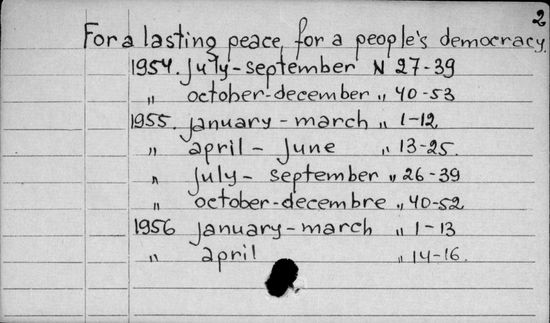 2
For a lasting peace, for a people's democracy.
1954. july-september N 27-39
" october-december " 40-53
1955. january-march " 1-12
" april - June " 13-25.
" july- september " 26-39
" october-decembre " 40-52
1956 january-march " 1-13
" april " 14-16.